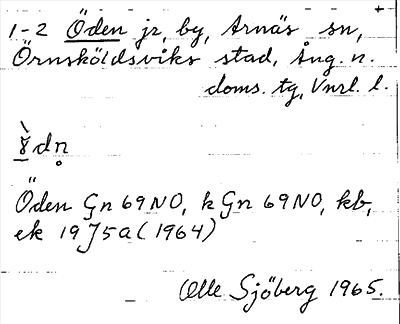 1-2 Öden jr, by, Arnäs sn,
Örnsköldsviks stad, Ång. n.
doms. tg, Vnrl. l.
Öden Gn 69 NO, k Gn 69 NO, kb,
ek 19 J5a (1964)
Olle Sjöberg 1965.